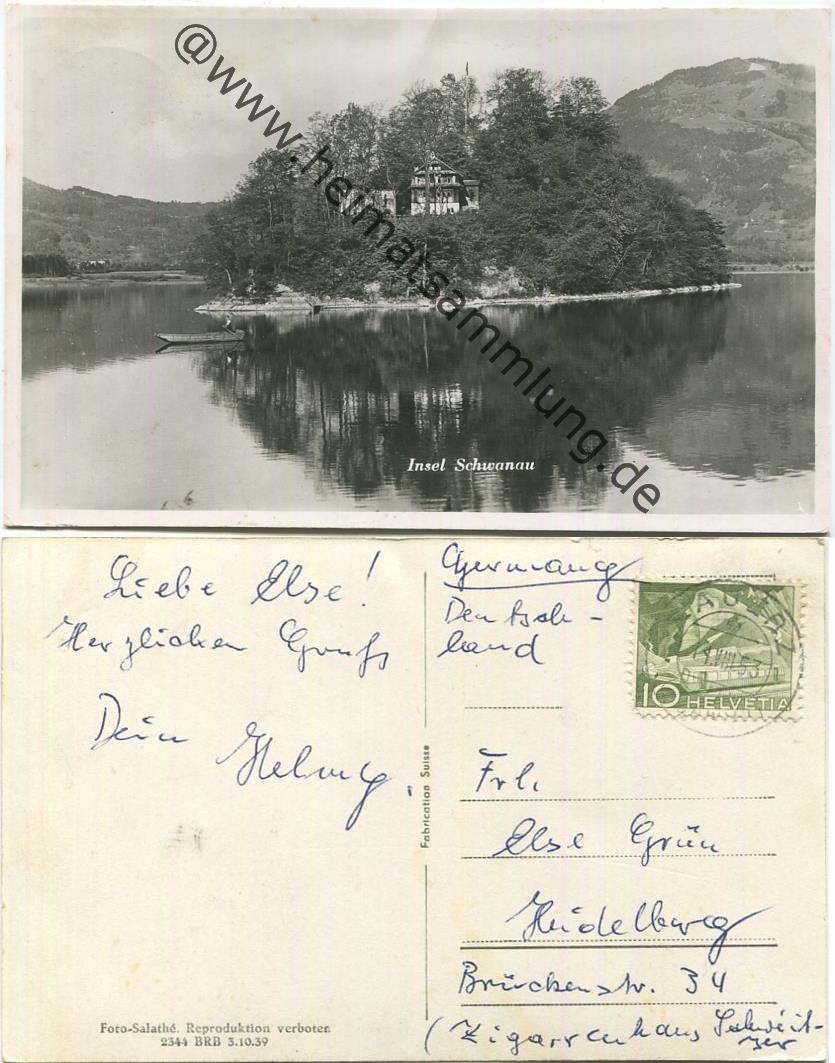 @www.heimatsammlung.de
Insel Schwanau
Liebe Else!
Herzlichen Gruß
Dein
Helmug.
Fabrication Suisse
Foto-Salathé. Reproduktion verboten
2344 BRB 3.10.39
Germany
Deutsch-
land
10 HELVETIA
Frl.
Else Grün
Heidelberg
Brückenstr. 34
(Zigarrenhaus Schweit-
zer